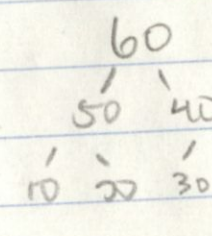 60
50 40
10 20 30